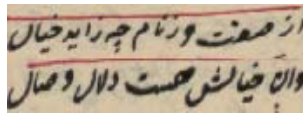 از صفت وز نام چه زاید خیال
وان خیالش هست دلال وصال